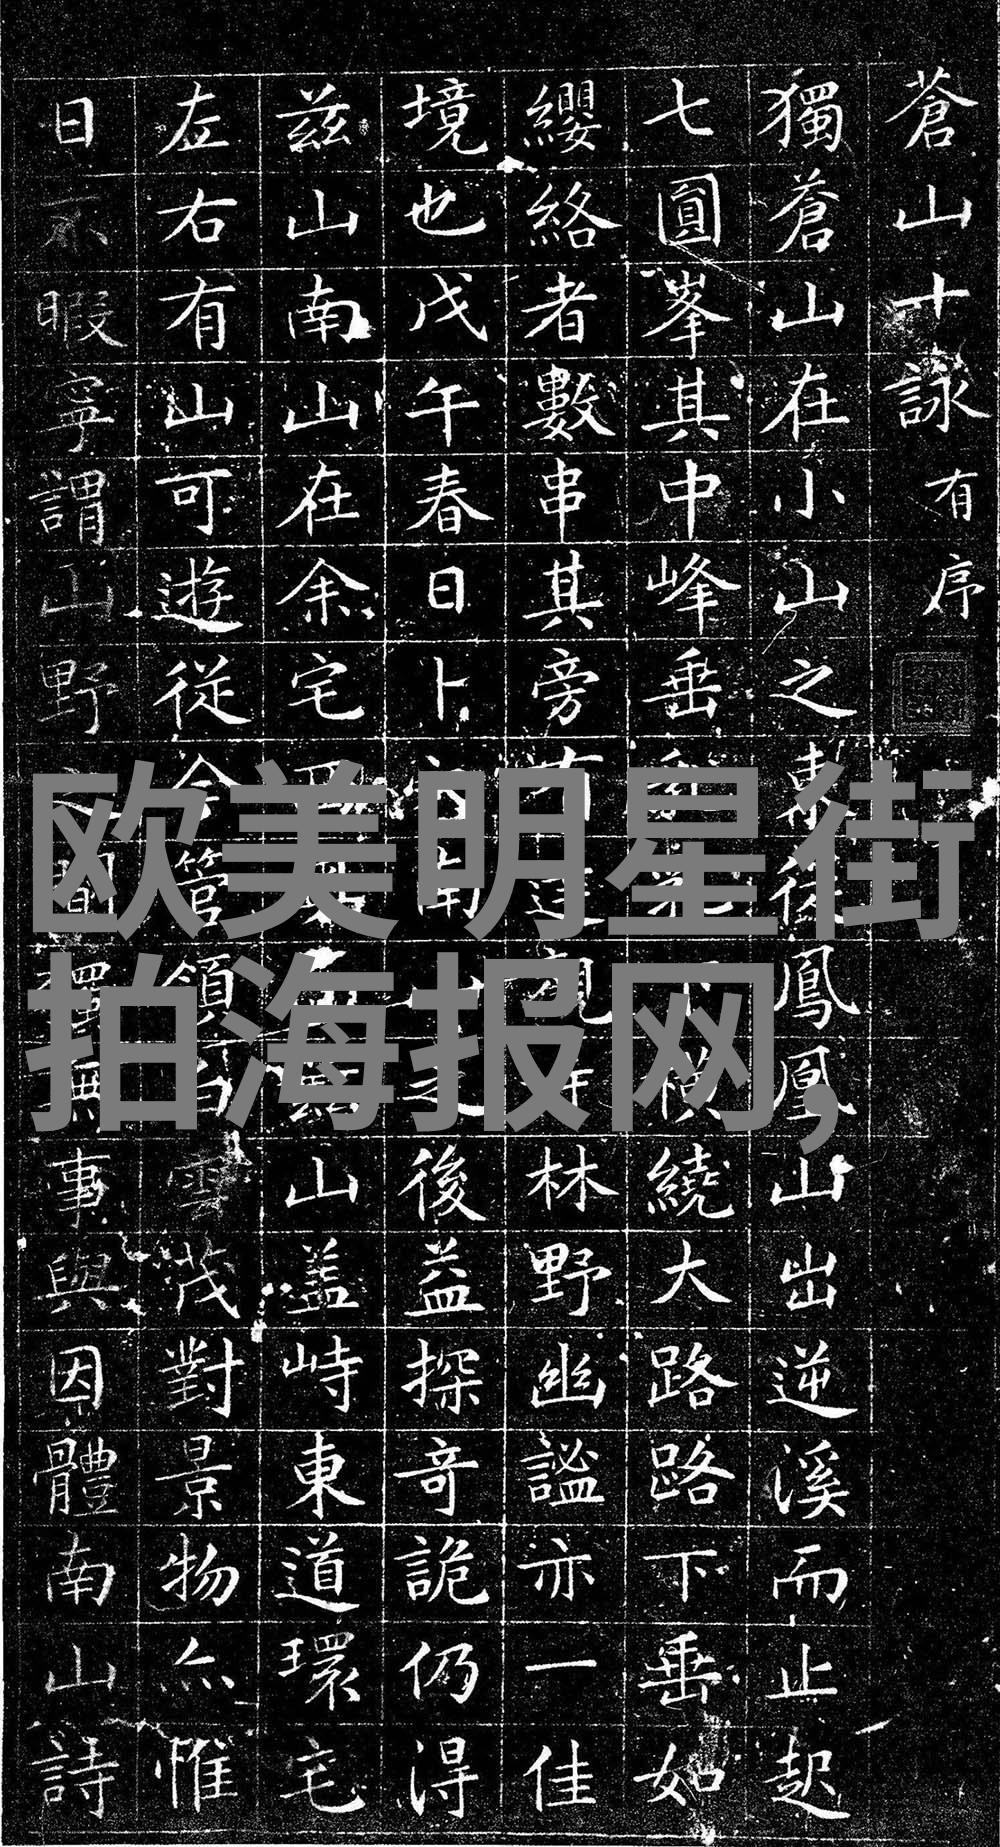 蒼山十詠 有序
獨蒼山在小山之東從鳳凰山出逆溪而止起
七圓峯其中峰垂下横繞大路路下垂如
纓絡者數串其旁有林野幽謐亦一佳
境也戊午春日卜南山之後益探奇詭仍得
茲山南山在余宅山盖峙東道環宅
左右有山可遊從今管領白雲茂對景物亦惟
日不暇寧謂山野之間獨無事與因體南山詩
欧美明星街
拍海报网，